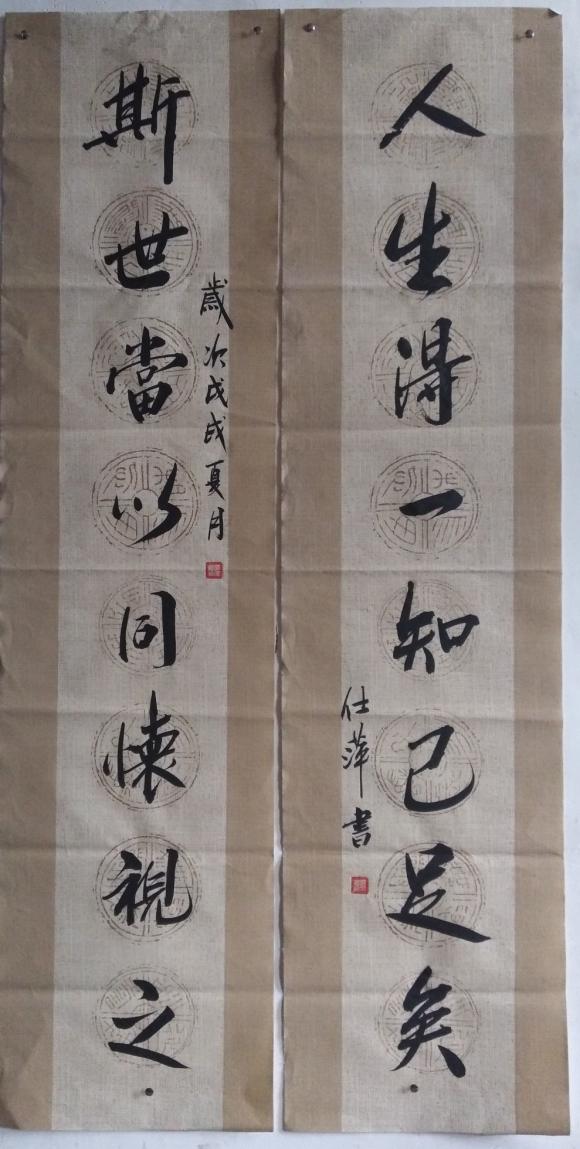 人生得一知己足矣
仕萍書
歲次戊戌夏月
斯世當以同懷視之